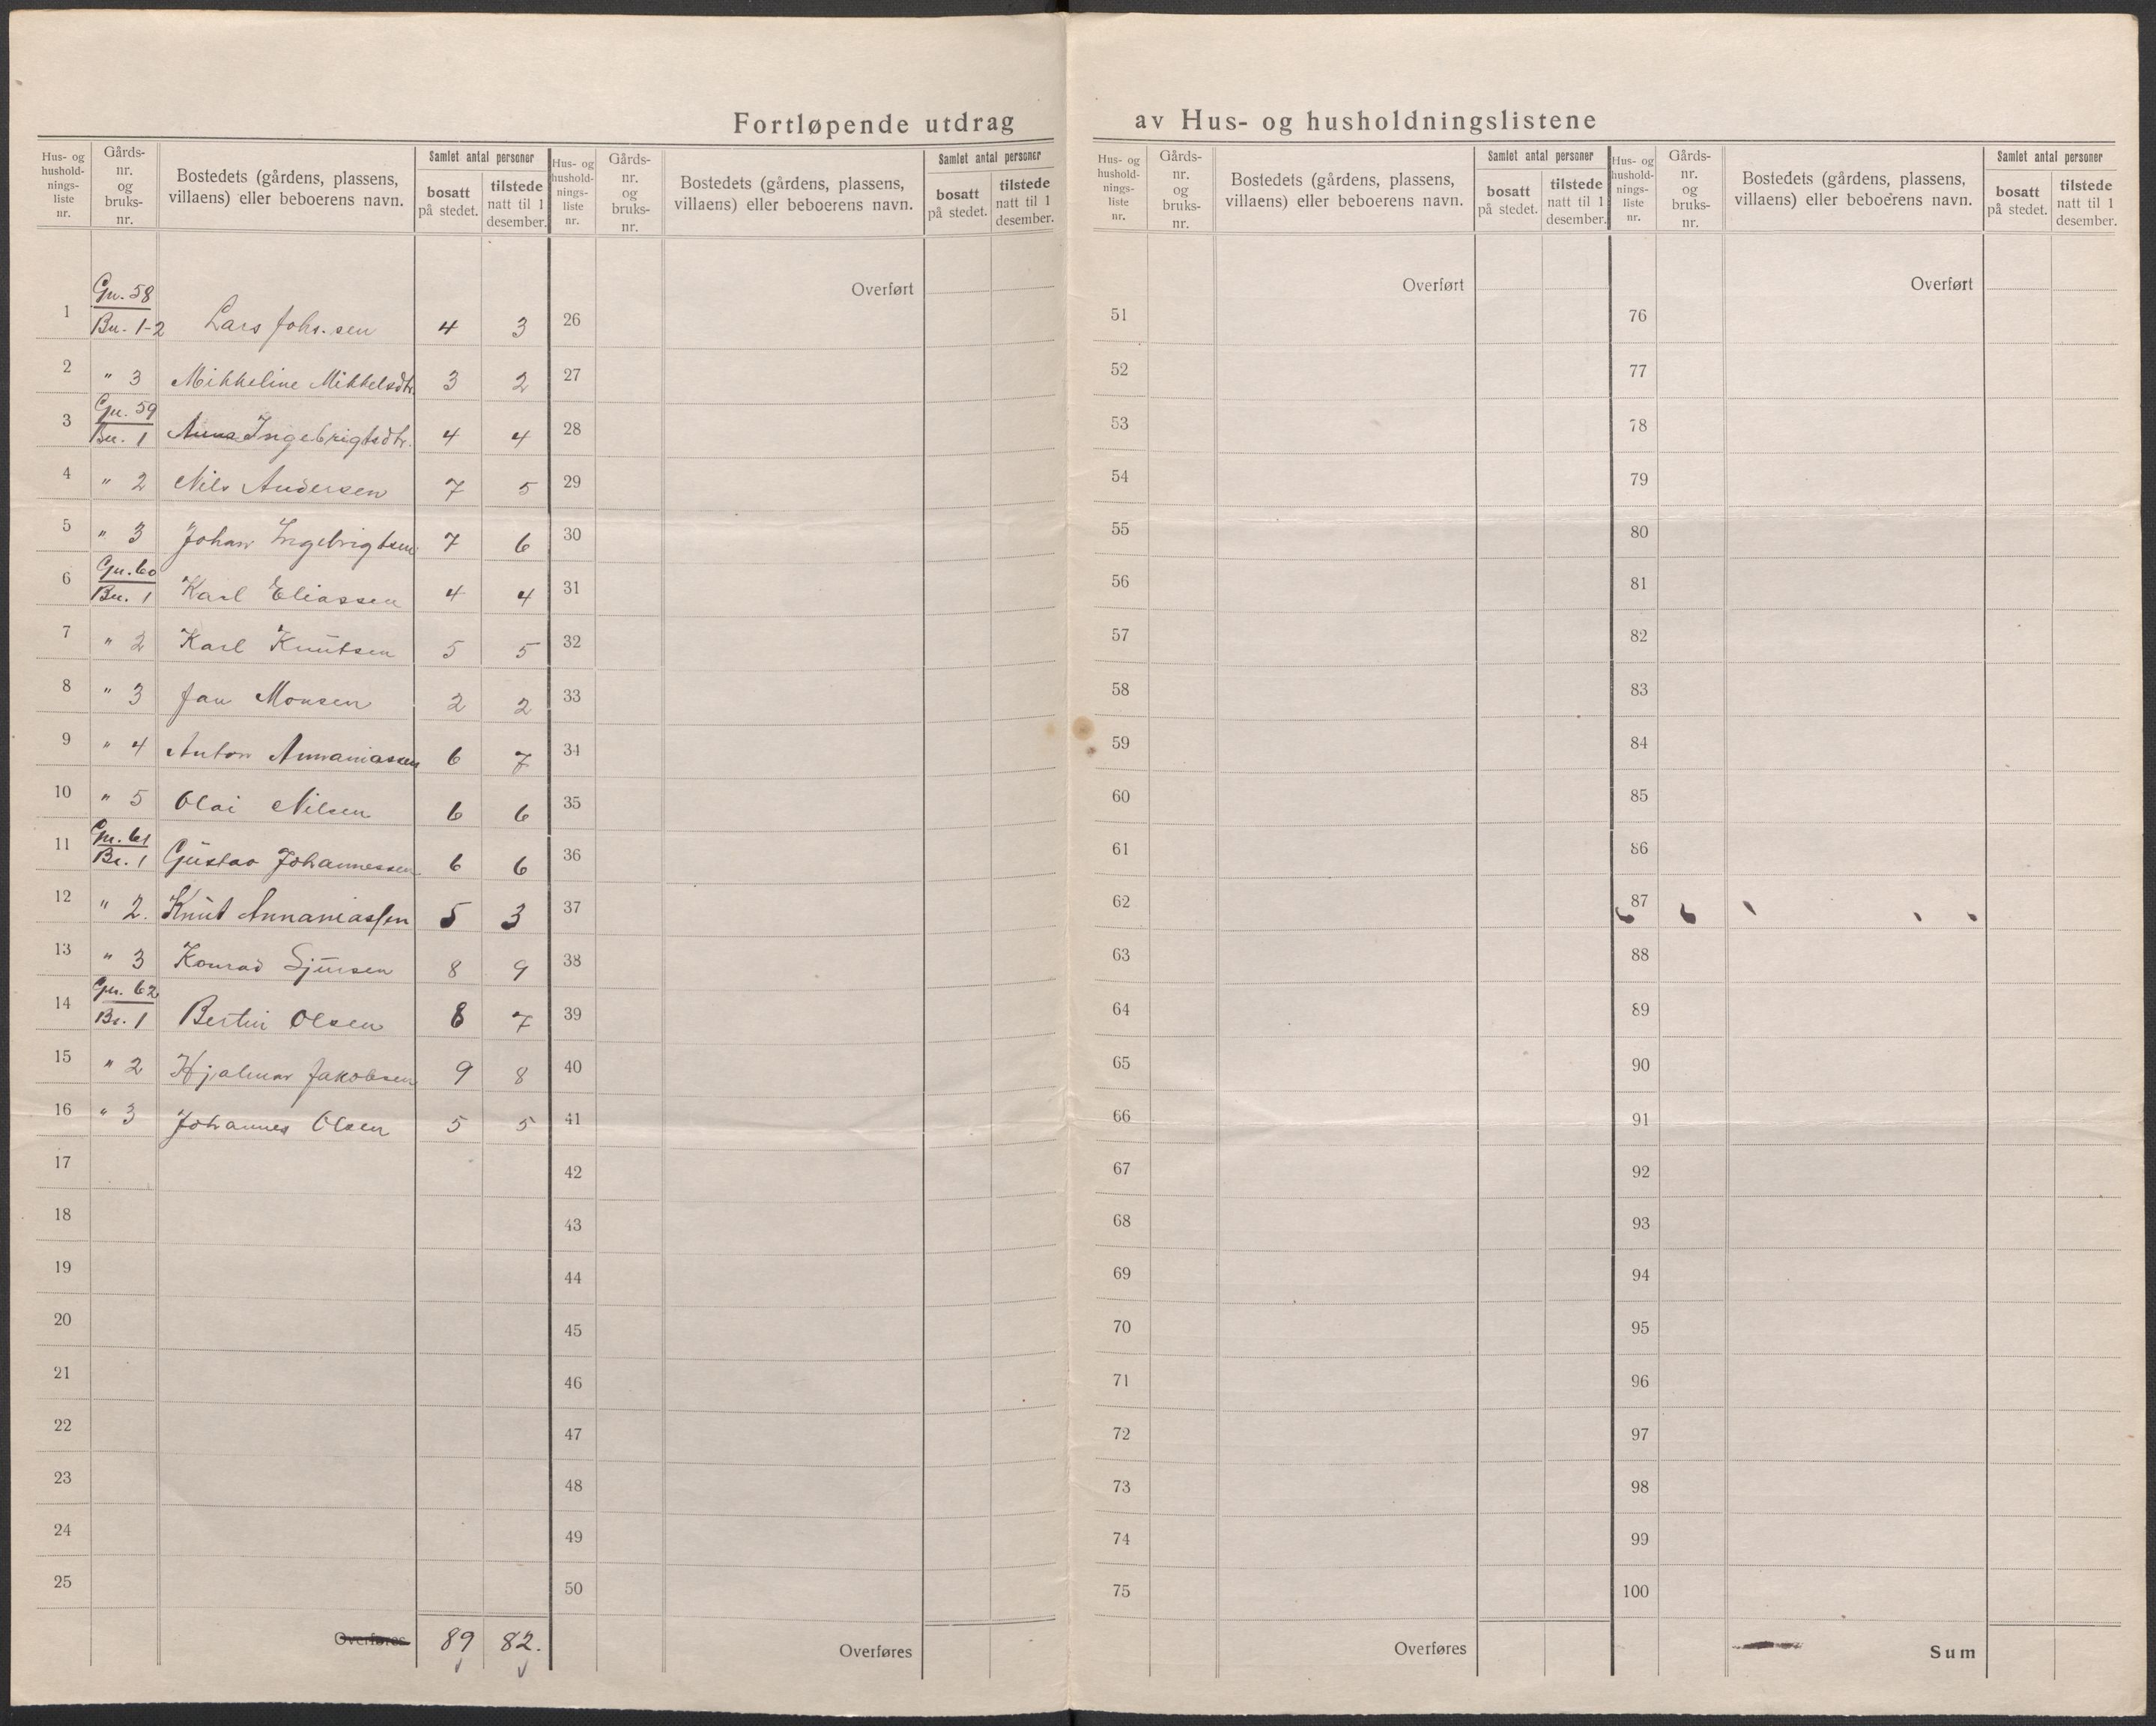 Fortløpende utdrag av Hus- og husholdningslistene
Hus- og hushold-nings-liste nr. | Gårds-nr. og bruks-nr. | Bostedets (gårdens, plassens, villaens) eller beboerens navn. | Samlet antal personer | bosatt på stedet. | tilstede natt til 1 desember.
1 Gn. 58 Bn. 1-2 Lars Johs.sen 4 3
2 " 3 Mikkeline Mikkelsdtr. 3 2
3 Gn. 59 Bn. 1 Anna Ingebrigtsdtr. 4 4
4 " 2 Nils Andersen 7 5
5 " 3 Johan Ingebrigtsen 7 6
6 Gn. 60 Bn. 1 Karl Eliassen 4 4
7 " 2 Karl Knutsen 5 5
8 " 3 Jan Monsen 2 2
9 " 4 Anton Annaniassen 6 7
10 " 5 Olai Nilsen 6 6
11 Gn. 61 Br. 1 Gustav Johannessen 6 6
12 " 2. Knut Annaniassen 5 3
13 " 3 Konrad Sjursen 8 9
14 Gn. 62 Br. 1 Bertin Olsen 8 7
15 " 2 Hjalmar Jakobsen 9 8
16 " 3 Johannes Olsen 5 5
17
18
19
20
21
22
23
24
25
Overføres 89 82.
Hus- og hushold-nings-liste nr. | Gårds-nr. og bruks-nr. | Bostedets (gårdens, plassens, villaens) eller beboerens navn. | Samlet antal personer | bosatt på stedet. | tilstede natt til 1 desember.
Overført
26
27
28
29
30
31
32
33
34
35
36
37
38
39
40
41
42
43
44
45
46
47
48
49
50
Overføres
Hus- og hushold-nings-liste nr. | Gårds-nr. og bruks-nr. | Bostedets (gårdens, plassens, villaens) eller beboerens navn. | Samlet antal personer | bosatt på stedet. | tilstede natt til 1 desember.
Overført
51
52
53
54
55
56
57
58
59
60
61
62
63
64
65
66
67
68
69
70
71
72
73
74
75
Overføres
Hus- og hushold-nings-liste nr. | Gårds-nr. og bruks-nr. | Bostedets (gårdens, plassens, villaens) eller beboerens navn. | Samlet antal personer | bosatt på stedet. | tilstede natt til 1 desember.
Overført
76
77
78
79
80
81
82
83
84
85
86
87
88
89
90
91
92
93
94
95
96
97
98
99
100
Sum